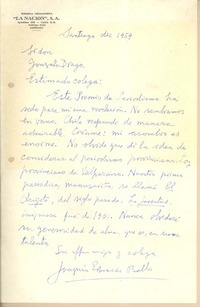 EMPRESA PERIODISTICA
"LA NACION", S.A.
Santiago dic 1959
Señor
Gonzalo Drago
Estimado colega:
Este Premio de Periodismo ha
sido para mi una noción. No resbalamos
en vano. Chile responde de manera
admirable. Créame: mi asombro es
enorme. No olvide que di la idea de
considerar al periodismo provinciano. Soy
provinciano de Valparaíso. Nuestro primer
periódico, manuscrito, se llamó El
del siglo pasado. La juventud,
impresa fue en 1901. Nunca olvidaré
su generosidad de alma, que es, en suma
talento.
Su affmo amigo y colega
Joaquín Edwards Bello